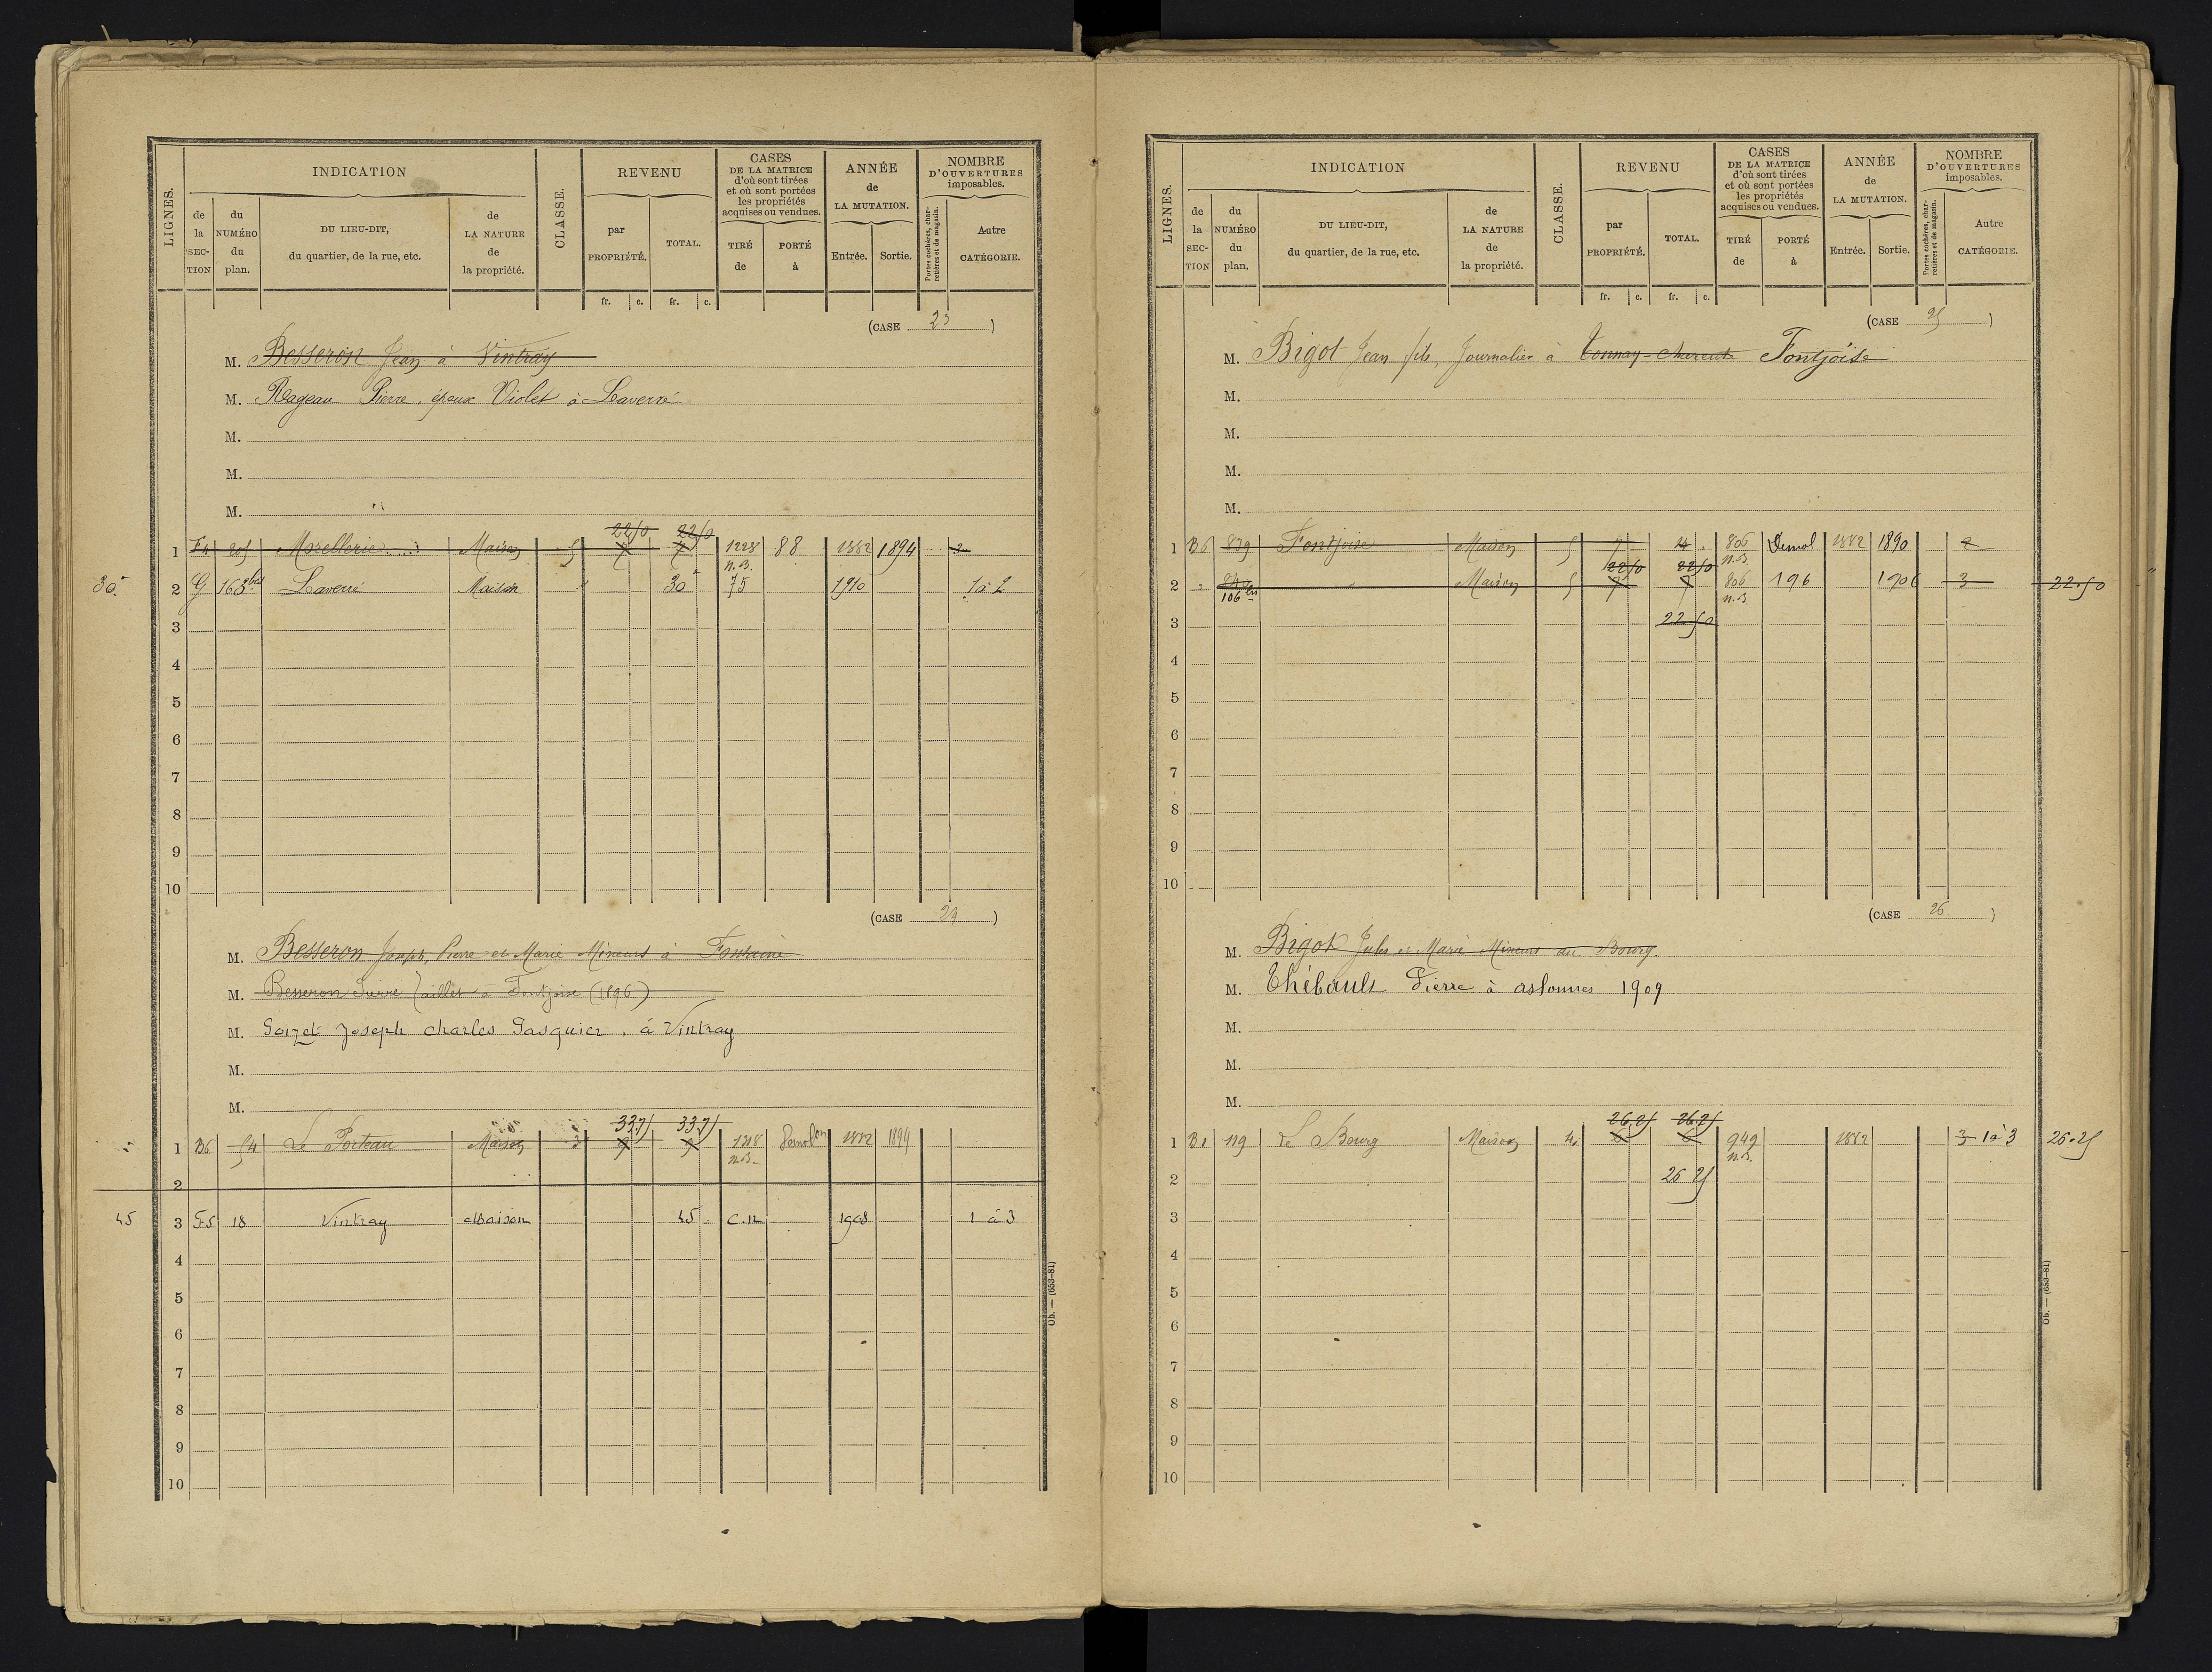 LIGNES.
INDICATION
CLASSE.
REVENU
CASES
DE LA MATRICE
d'où sont tirées
et où sont portées
les propriétés
acquises ou vendues.
ANNÉE
de
LA MUTATION.
NOMBRE
D'OUVERTURES
imposables.
de la SECTION
du NUMÉRO du plan.
DU LIEU-DIT,
du quartier, de la rue, etc.
de LA NATURE de la propriété.
par PROPRIÉTÉ.
TOTAL.
TIRÉ de
PORTÉ à
Entrée.
Sortie.
Portes cochères, charretières et de magasin.
Autre CATÉGORIE.
fr. c. fr. c.
(CASE 23)
M. Besseron Jean à Vintray
M. Rageau Pierre, époux Violet à Laverré
M.
M.
M.
22/50 22/50
1 F4 205 Morellerie Maison 5 7 7 1228 88 1882 1894 3
n.B.
30 2 G 163 bis Laverré Maison 30 75 1910 1 à 2
3
4
5
6
7
8
9
10
(CASE 24)
M. Besseron Joseph, Pierre et Marie Mineurs à Fontaine
M. Besseron Pierre à Fontjoise (1896)
M. Goizet Joseph Charles Pasquier, à Vintray
M.
M.
33.75 33.75
1 B6 54 Le Porteau Maison 3 9 9 1218 Demol on 1882 1894
n.B.
2
45 3 F5 18 Vintray Maison 45 C.N. 1908 1 à 3
4
5
6
7
8
9
10
Ob. — (653-81)
LIGNES.
INDICATION
CLASSE.
REVENU
CASES
DE LA MATRICE
d'où sont tirées
et où sont portées
les propriétés
acquises ou vendues.
ANNÉE
de
LA MUTATION.
NOMBRE
D'OUVERTURES
imposables.
de la SECTION
du NUMÉRO du plan.
DU LIEU-DIT,
du quartier, de la rue, etc.
de LA NATURE de la propriété.
par PROPRIÉTÉ.
TOTAL.
TIRÉ de
PORTÉ à
Entrée.
Sortie.
Portes cochères, charretières et de magasin.
Autre CATÉGORIE.
fr. c. fr. c.
(CASE 25)
M. Bigot Jean fils, Journalier à Tonnay-Charente Fontjoise
M.
M.
M.
M.
1 B6 839 Fontjoise Maison 5 7 14 806 Demol 1882 1890 2
22/50 22/50 n.B.
2 " 840 " Maison 5 7 7 806 196 1906 3 22.50
106 bis n.B.
3 22.50
4
5
6
7
8
9
10
(CASE 26)
M. Bigot Jules et Marie Mineurs au Bourg.
M. Thébault Pierre à aslonnes 1909
M.
M.
M.
26.25 26.25
1 B1 119 Le Bourg Maison 4 6 6 949 1882 3 1 à 3 26.25
n.B.
2 26 25
3
4
5
6
7
8
9
10
Ob. — (653-81)